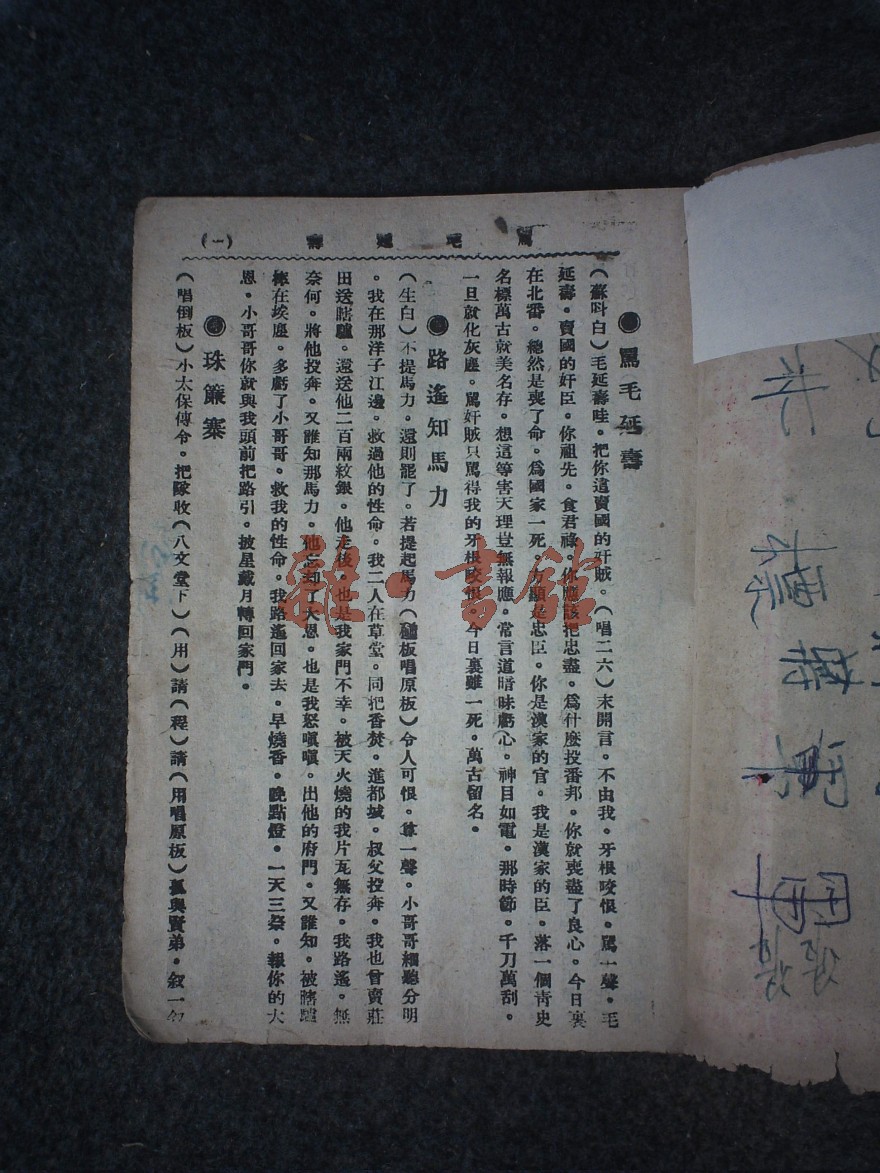 罵毛延壽 (一)
●罵毛延壽
(蘇呌白)毛延壽哇。把你這賣國的奸賊。(唱二六)未開言。不由我。牙根咬恨。罵一聲。毛
延壽。賣國的奸臣。你祖先。食君祿。你應該把忠盡。爲什麽投番邦。你就喪盡了良心。今日裏
在北番。總然是喪了命。爲國家一死。方顯是忠臣。你是漢家的官。我是漢家的臣。落一個靑史
名標萬古就美名存。想這等害天理豈無報應。常言道暗昧虧心。神目如電。那時節。千刀萬刮。
一旦就化灰塵。罵奸賊只罵得我的牙根咬恨。今日裏雖一死。萬古留名。
●路遙知馬力
(生白)不提馬力。還則罷了。若提起馬力(板唱原板)令人可恨。尊一聲。小哥哥細聽分明
。我在那洋子江邊。救過他的性命。我二人在草堂。同把香焚。進都城。叔父投奔。我也曾賣莊
田送瞎驢。還送他二百兩紋銀。他走後。也是我家門不幸。被天火燒的我片瓦無存。我路遙。無
奈何。將他投奔。又誰知那馬力。他忘却了大恩。也是我怒嗔嗔。出他的府門。又誰知。被瞎驢
摔在埃塵。多虧了小哥哥。救我的性命。我路遙回家去。早燒香。晚點燈。一天三祭。報你的大
恩。小哥哥你就與我頭前把路引。披星戴月轉回家門。
●珠簾寨
(唱倒板)小太保傳令。把隊收(八文堂下)(用)請(程)請(用唱原板)孤與賢弟。叙一叙
雜·書館